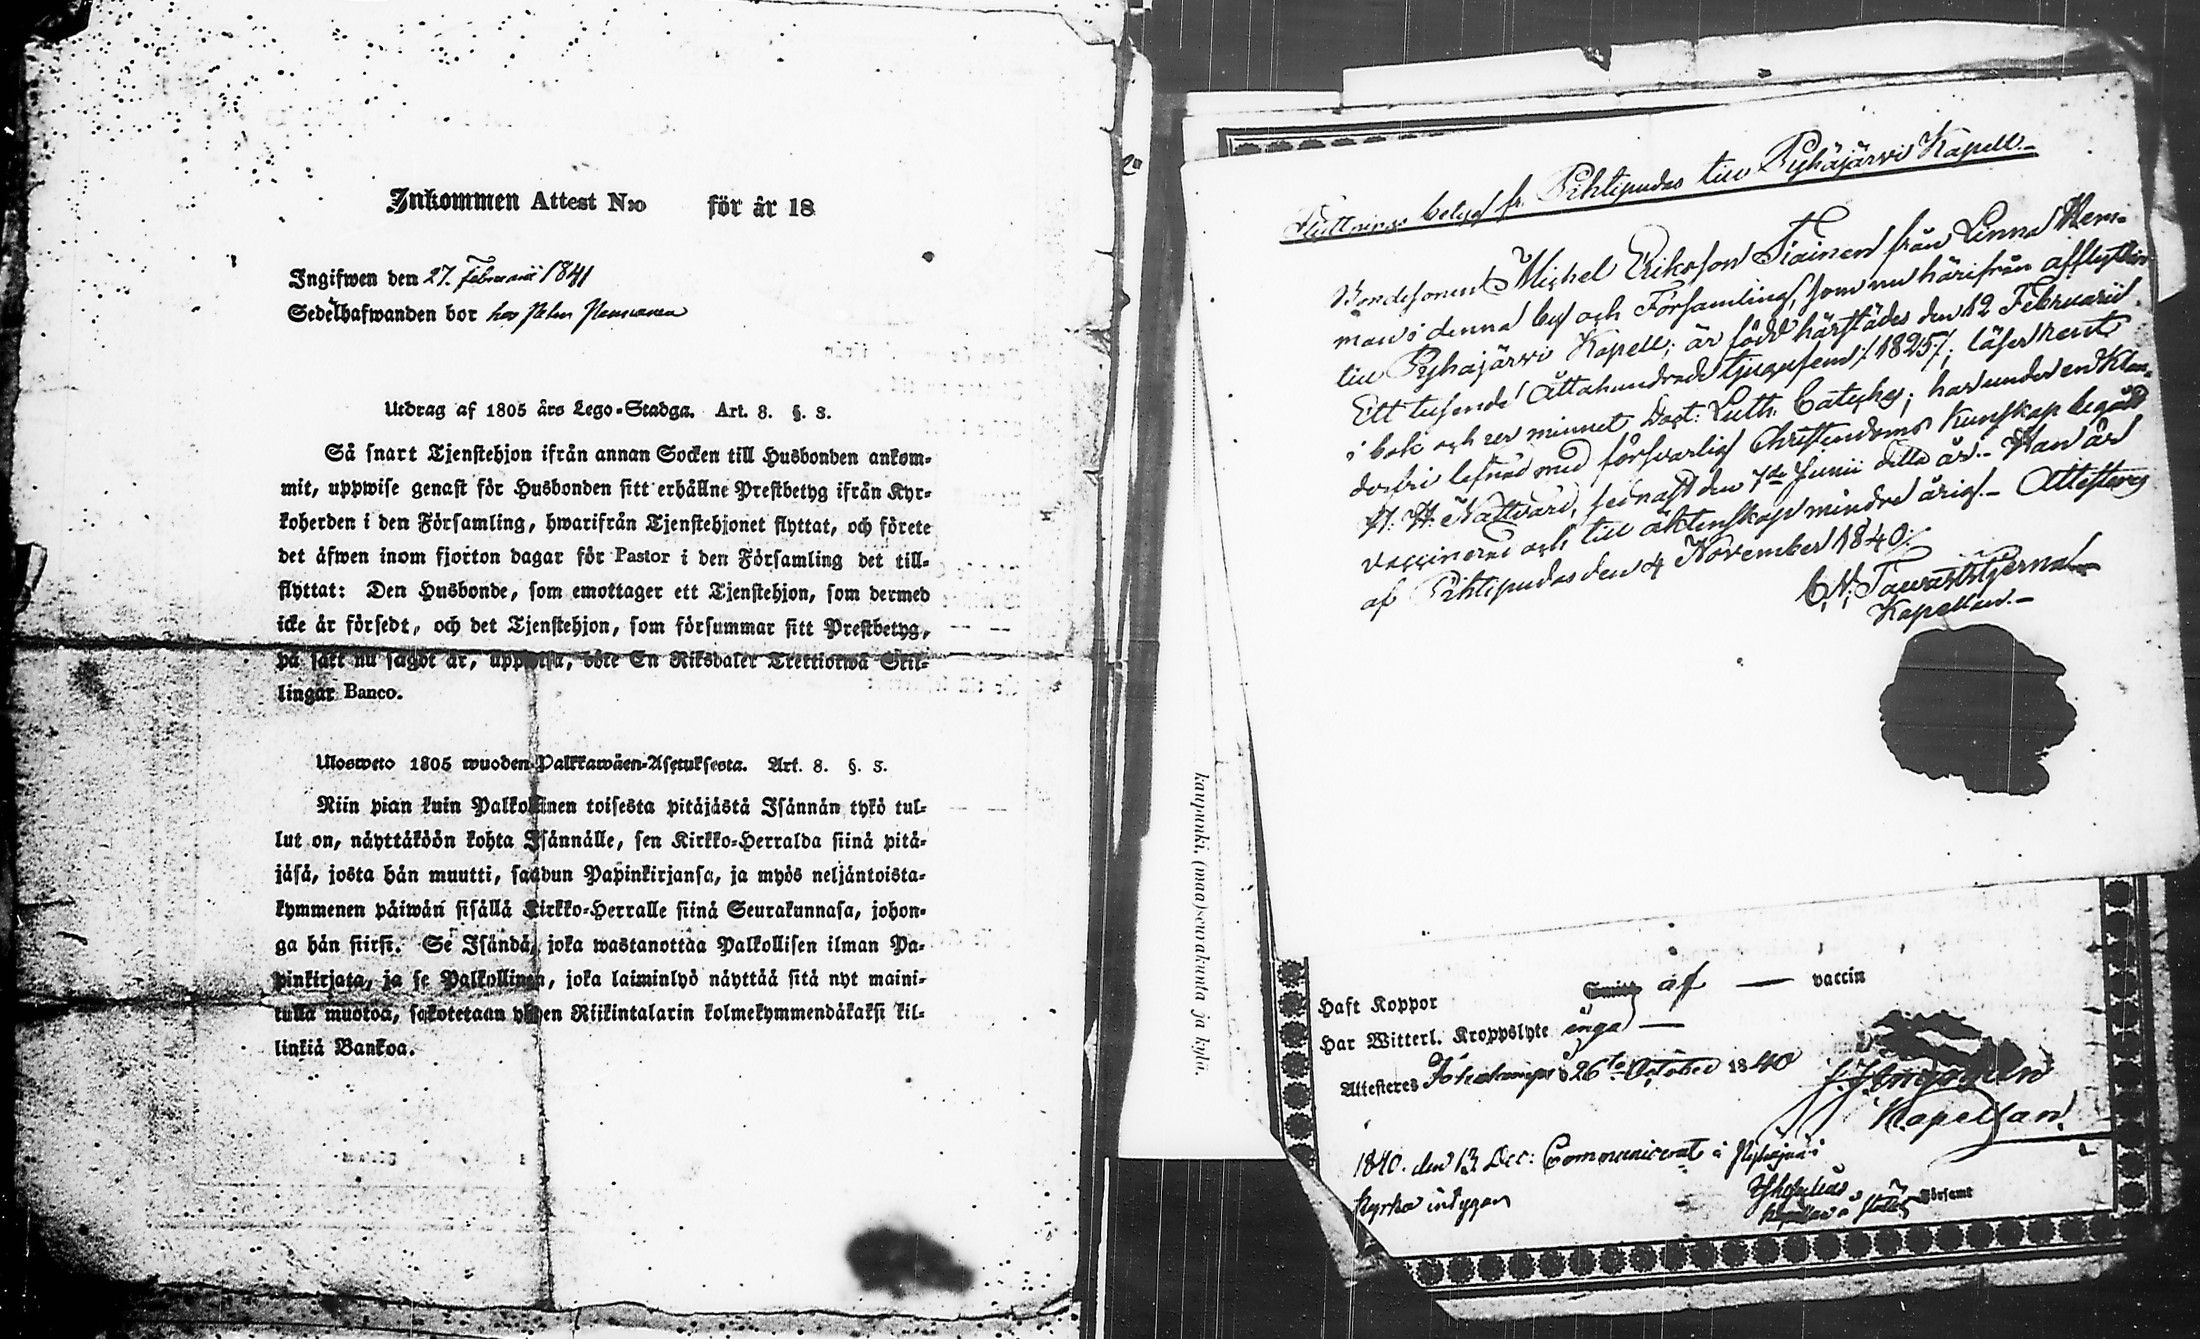 Inkommen Attest N:o för år 18
Ingifwen den 27. Februarii 1841
Sedelhafwanden bor hos Petter
Utdrag af 1805 års Lego-Stadga. Art. 8. §. 3.
Så snart Tjenstehjon ifrån annan Socken till Husbonden ankom-
mit, uppwise genast för Husbonden sitt erhållne Prestbetyg ifrån Kyr-
koherden i den Församling, hwarifrån Tjenstehjonet flyttat, och förete
det äfwen inom fjorton dagar för Pastor i den Församling det till-
flyttat: Den Husbonde, som emottager ett Tjenstehjon, som dermed
icke är försedt, och det Tjenstehjon, som försummar sitt Prestbetyg,
på sätt nu sagdt är, uppwisa, böte En Riksdaler Trettiotwå Skil-
lingar Banco.
Ulosweto 1805 wuoden Palkkawäen-Asetuksesta. Art. 8. §. 3.
Niin pian kuin Palkollinen toisesta pitäjästä Isännän tykö tul-
lut on, näyttäköön kohta Isännälle, sen Kirkko-Herralda siinä pitä-
jäsä, josta hän muutti, saadun Papinkirjansa, ja myös neljäntoista-
kymmenen päiwän sisällä Kirkko-Herralle siinä Seurakunnasa, johon-
ga hän siirsi. Se Isändä, joka wastanottaa Palkollisen ilman Pa-
pinkirjata, ja se Palkollinen, joka laiminlyö näyttää sitä nyt maini-
tulla muotoa, sakotetaan yhden Riikintalarin kolmekymmendäkaksi kil-
linkiä Bankoa.
kaupunki, (maa)seurakunta ja kylä,
Flyttnings betyg fr. Pihtipudas till Pyhäjärvi Kapell.-
Bondesonen Michel Eriksson Tiainen från Linna Hem-
man i denna by och Församling, som nu härifrån afflyttar
till Pyhäjärvi Kapell; är född härstädes den 12 Februarii
Ett tusende Åttahundrade tjugufem /:1825:/; läser rent
i bok och ur minnet Doct: Luth: Cateches; har under en klan-
derfri lefnad med försvarlig Christendoms kunskap begådt
H. H. Nattvard, sednast den 7de Junii detta år.- Han är
vaccinerad och till äktenskap minderårig.- Attesteras
af Pihtipudas den 4 November 1840.
C. N. Tawaststjerna
Kapellan.-
Haft Koppor af — vaccin
Har Witterl. Kroppslyte inga —
Attesteres den 26te October 1840
Kapellan.
1840. den 13 Dec: Communicerat i Pyhäjärvi
Kyrka intygar
Församl